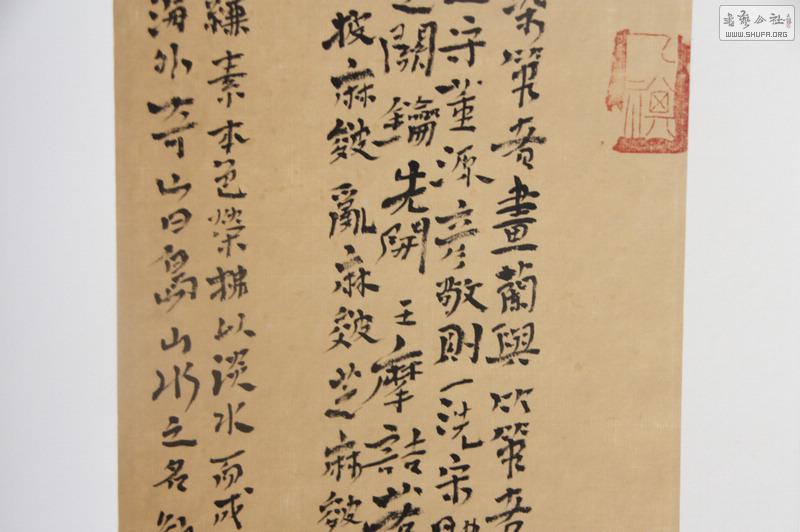 筆者畫蘭與竹筆者
守董源彦敬則一洗宋
關鑰先開王摩詰若
披麻皴亂麻皴芝麻皴
縑素本色縈拂以淡水而成
海外奇山曰島山水之名
书艺公社
WWW.SHUFA.ORG